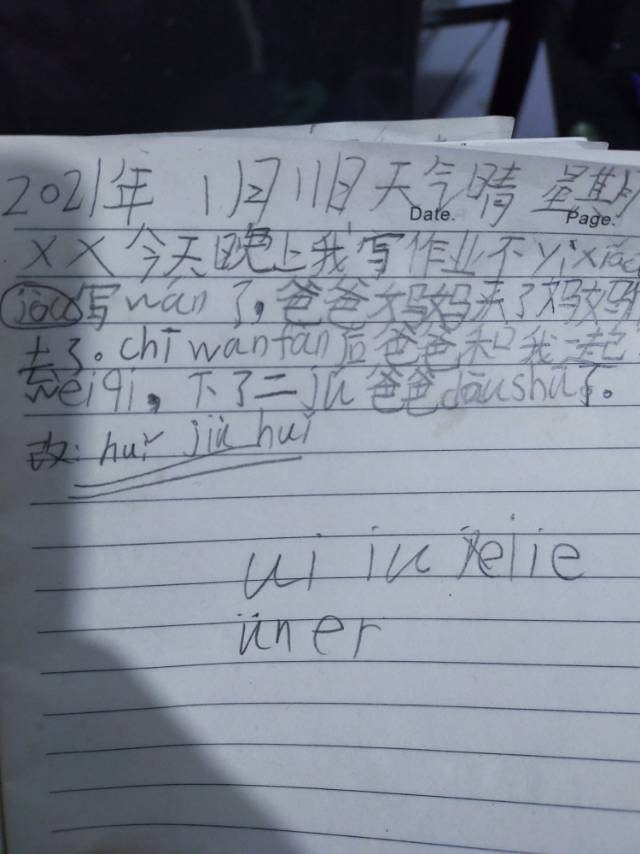 2021年 1月11日 天气晴 星期
Date. Page.
XX今天晚上我写作业不yixiao
jou写wán了。爸爸妈妈来了妈妈
去了。chī wanfan后爸爸和我一起
weiqi，下了二jú爸爸dōushū了。
改：huí jiù huì
ui iu ie
ün er